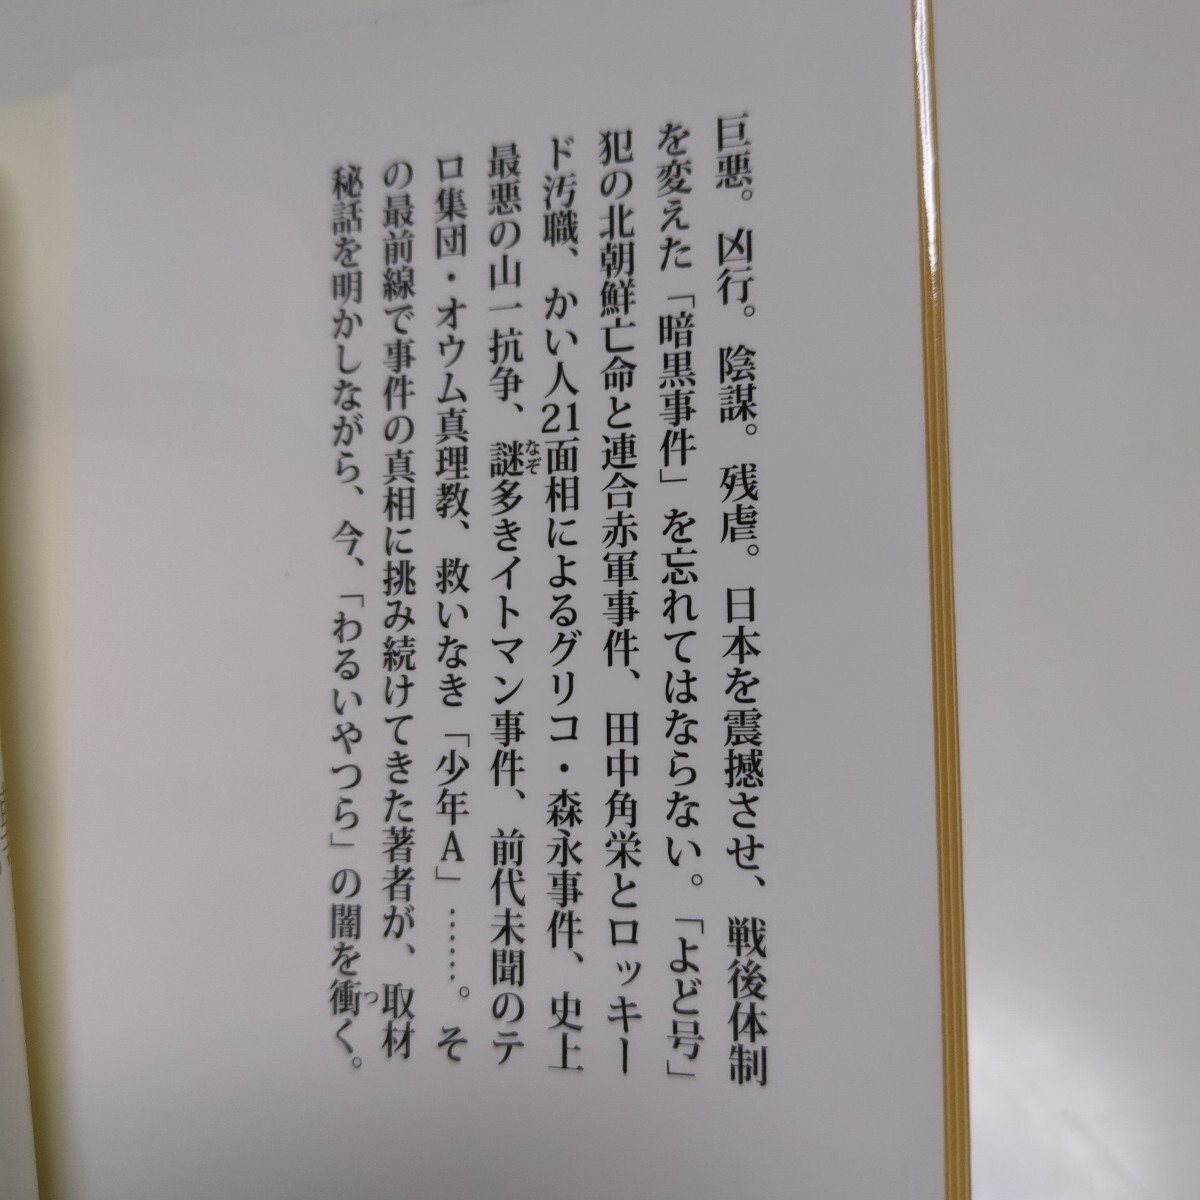 巨悪。凶行。陰謀。残虐。日本を震撼させ、戦後体制
を変えた「暗黒事件」を忘れてはならない。「よど号」
犯の北朝鮮亡命と連合赤軍事件、田中角栄とロッキー
ド汚職、かい人21面相によるグリコ・森永事件、史上
最悪の山一抗争、謎多きイトマン事件、前代未聞のテ
ロ集団・オウム真理教、救いなき「少年A」……。そ
の最前線で事件の真相に挑み続けてきた著者が、取材
秘話を明かしながら、今、「わるいやつら」の闇を衝く。